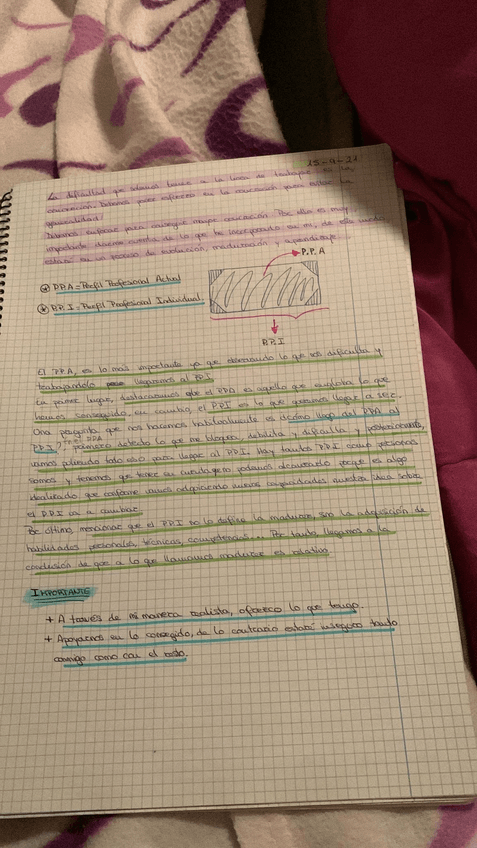 15-9-21
La dificultad que solemos tener a la hora de trabajar es la
concreción. Debemos poner esfuerzo en la concreción para evitar la
generalidad.
Debemos esforzar para conseguir mayor concreción. Por ello es muy
importante darme cuenta de lo que he incorporado en mi, de este modo
estaré en un proceso de evolución, maduración y aprendizaje.
P.P.A = Perfil Profesional Actual
P.P.I = Perfil Profesional Individual.
P.P.A
P.P.I
El P.P.A, es lo más importante ya que observando lo que nos dificulta y
trabajándolo llegaremos al P.P.I.
En primer lugar, destacaremos que el PPA es aquello que engloba lo que
hemos conseguido, en cambio, el P.P.I es lo que queremos llegar a ser.
Una pregunta que nos hacemos habitualmente es ¿cómo llego del PPA al
PPI? primero detecto lo que me bloquea, debilita y dificulta y posteriormente,
vamos puliendo todo eso para llegar al P.P.I. Hay tantos P.P.I como personas
somos y tenemos que tener en cuenta
idealizado que conforme vamos adquiriendo nuevas capacidades nuestra idea sobre
el P.P.I va a cambiar.
Por último, mencionar que el P.P.I no lo define la madurez, sino la adquisición de
habilidades personales, técnicas, competencias... Por tanto, llegamos a la
conclusión de que a lo que llamamos madurez es relativo.
IMPORTANTE
+ A través de mi manera realista, ofrezco lo que tengo.
+ Apoyarnos en lo conseguido, de lo contrario estaré inseguro tanto
conmigo como con el resto.